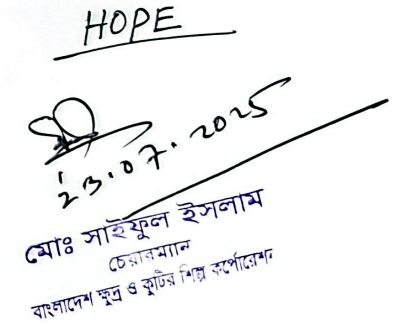 HOPE
23.07.2025
মোঃ সাইফুল ইসলাম
চেয়ারম্যান
বাংলাদেশ ক্ষুদ্র ও কুটির শিল্প কর্পোরেশন